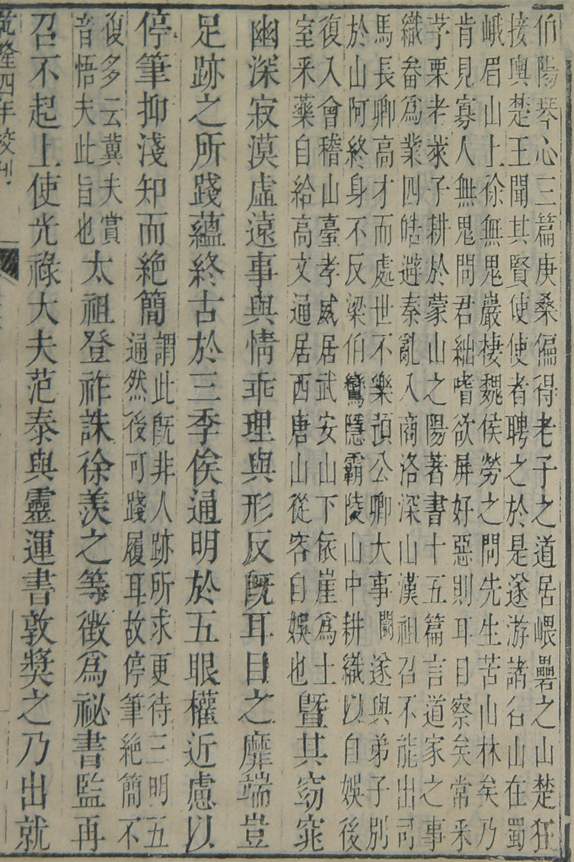 伯陽琴心三篇庚桑偏得老子之道居嵔礨之山楚狂
接輿楚王聞其賢使使者聘之於是遂游諸名山在蜀
峨眉山上徐無鬼巖棲魏侯勞之問先生苦山林矣乃
肯見寡人無鬼問君絀嗜欲屏好惡則耳目察矣常采
芧栗老萊子耕於蒙山之陽著書十五篇言道家之事
織畚爲業四皓避秦亂入商洛深山漢祖召不能出司
馬長卿高才而處世不樂預公卿大事遂與弟子別
於山阿終身不反梁伯鸞隱霸陵山中耕織以自娛後
復入會稽山臺孝威居武安山下依崖爲土
室釆藥自給高文通居西唐山從容自娛也
暨其窈窕
幽深寂漠虛遠事與情乖理與形反旣耳目之靡端豈
足跡之所踐蘊終古於三季俟通明於五眼權近慮以
停筆抑淺知而絶簡
謂此旣非人跡所求更待三明五
通然後可踐履耳故停筆絶簡不
復多云冀夫賞
音悟夫此旨也
太祖登祚誅徐羨之等徵爲祕書監再
召不起上使光祿大夫范泰與靈運書敦獎之乃出就
乾隆四年校刊